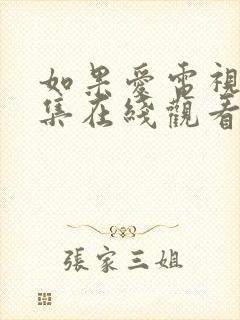 如果愛電視
集在綫觀看
張家三姐